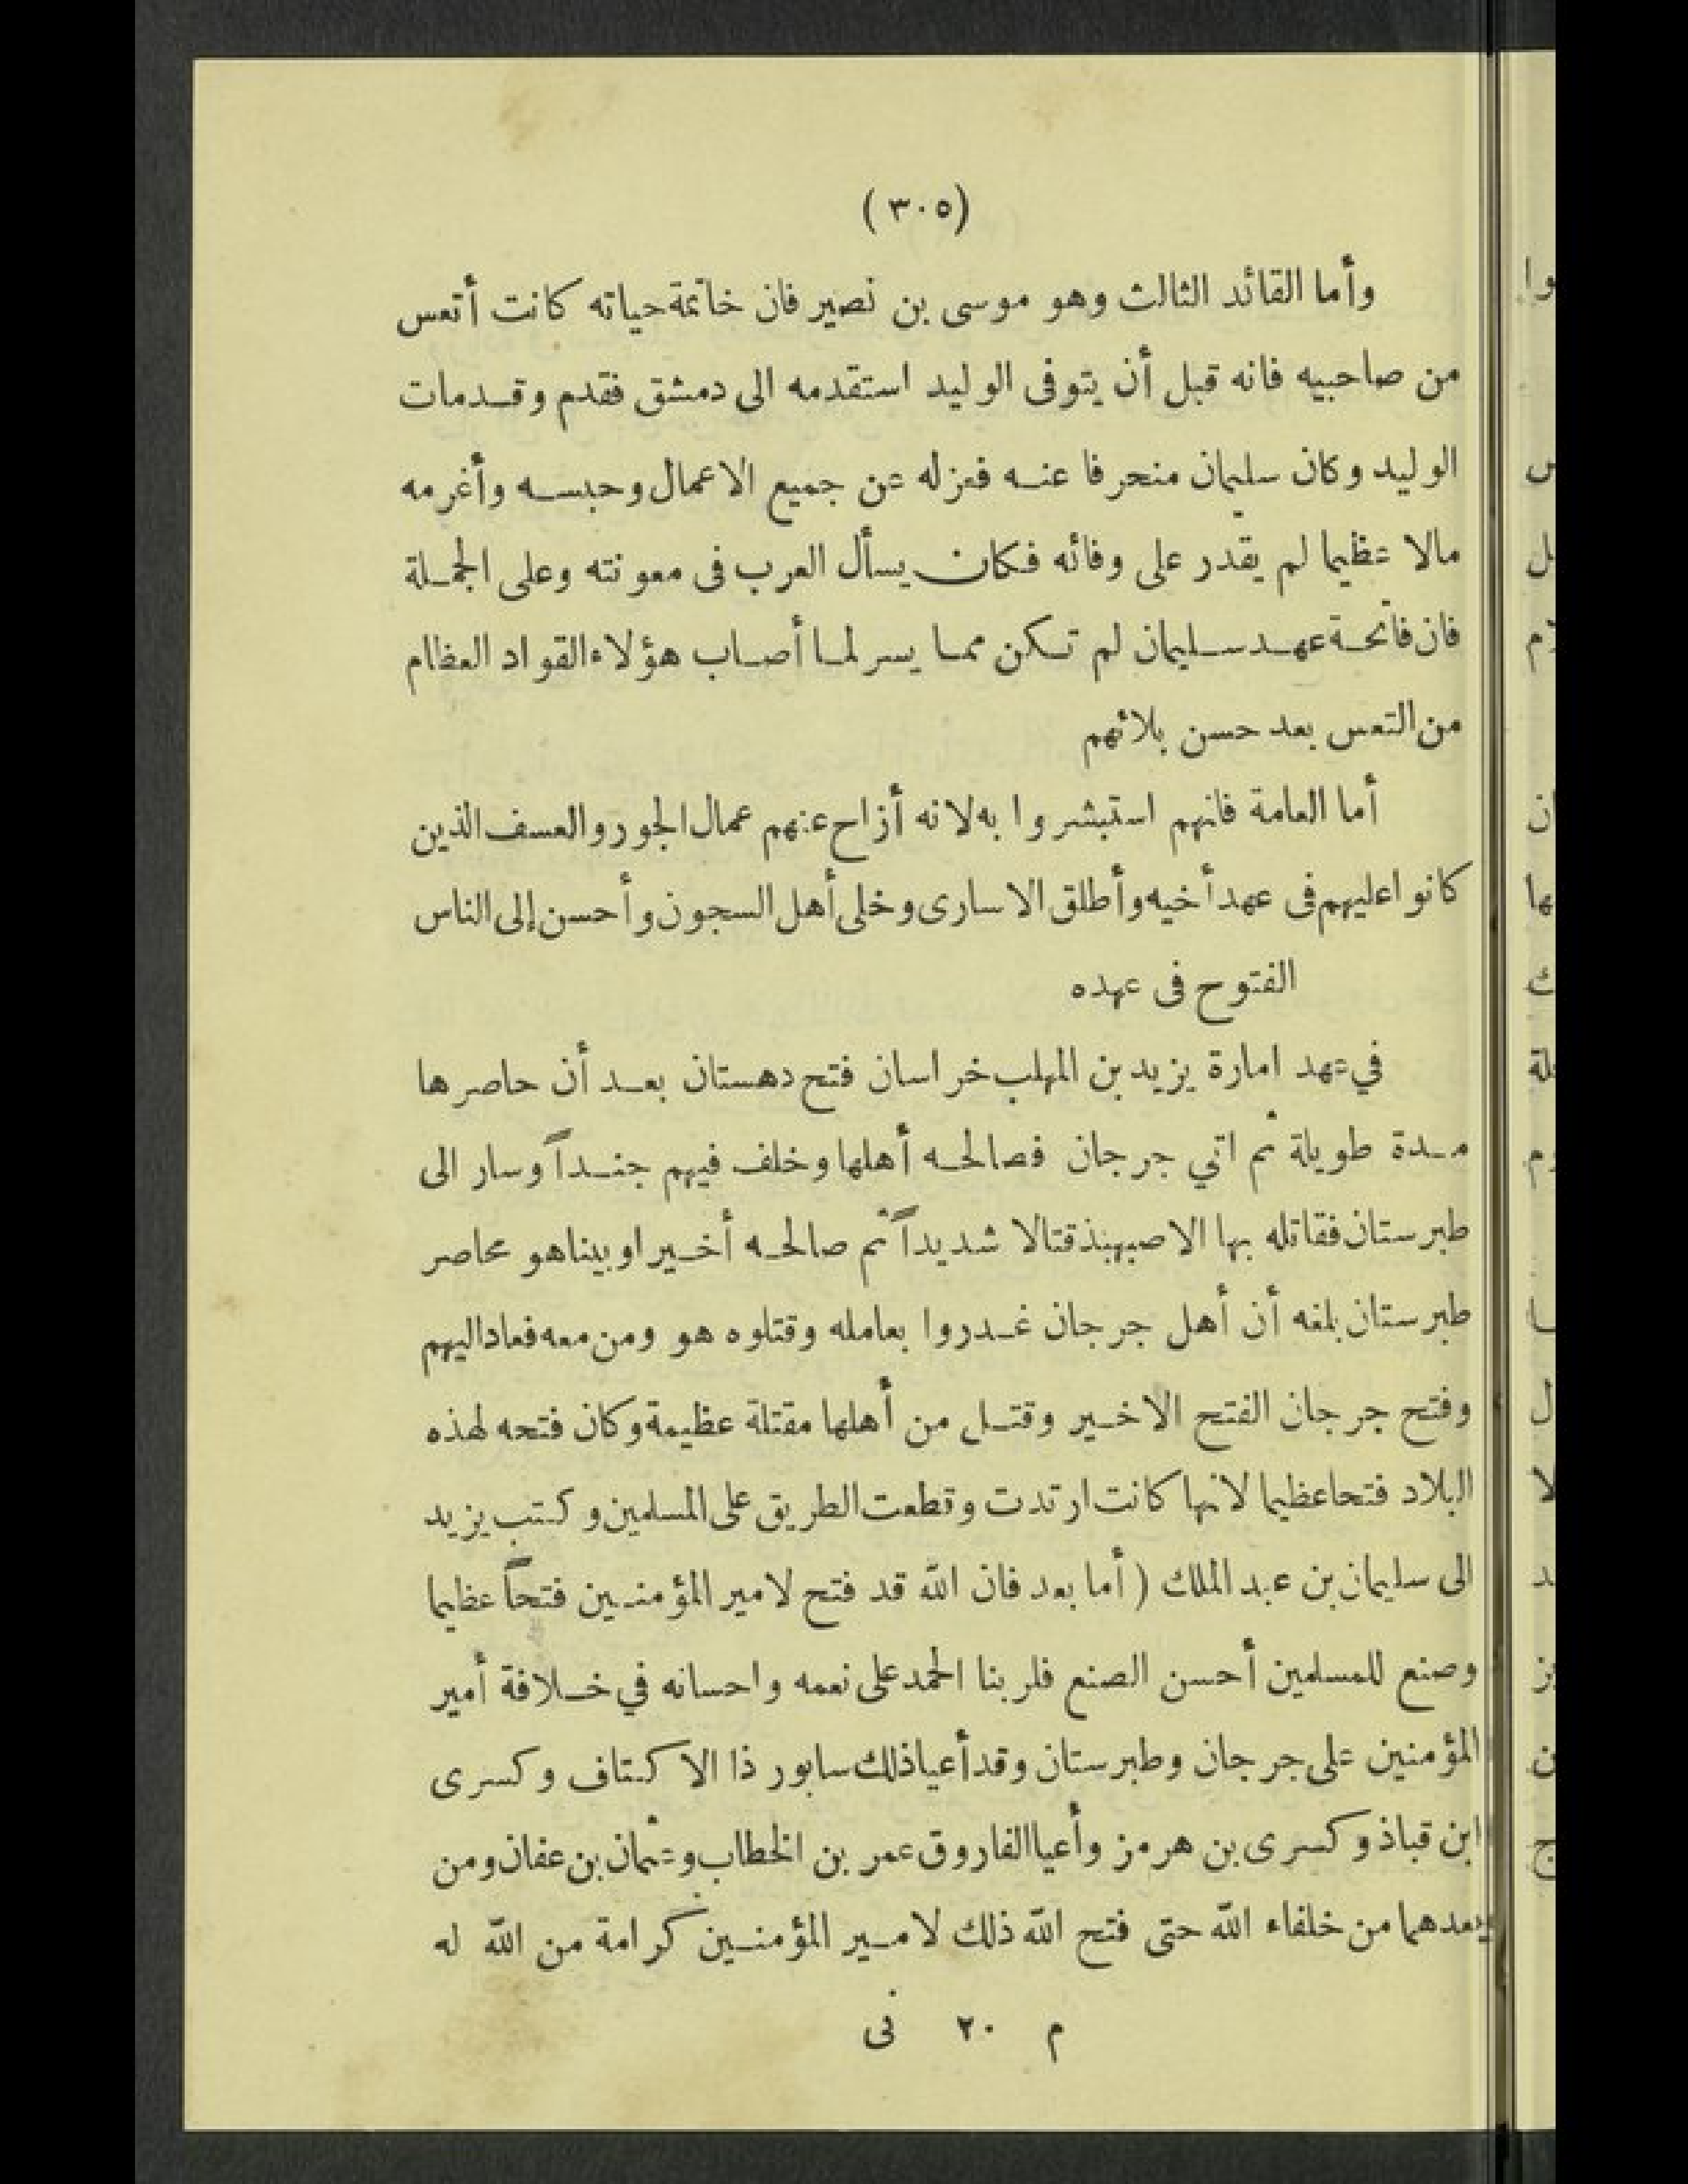 (٣٠٥)
وأما القائد الثالث وهو موسى بن نصير فان خاتمة حياته كانت أتعس
من صاحبيه فانه قبل أن يتوفى الوليد استقدمه الى دمشق فقدم وقد مات
الوليد وكان سليمان منحرفا عنه فعزله عن جميع الاعمال وحبسه وأغرمه
مالا عظيما لم يقدر على وفائه فكان يسأل العرب فى معونته وعلى الجملة
فان فاتحة عهد سليمان لم تكن مما يسر لما أصاب هؤلاء القواد العظام
من التعس بعد حسن بلائهم
أما العامة فانهم استبشروا به لانه أزاح عنهم عمال الجور والعسف الذين
كانوا عليهم فى عهد أخيه وأطلق الاسارى وخلى أهل السجون وأحسن إلى الناس
الفتوح فى عهده
في عهد امارة يزيد بن المهلب خراسان فتح دهستان بعد أن حاصرها
مدة طويلة ثم اتي جرجان فصالحه أهلها وخلف فيهم جنداً وسار الى
طبرستان فقاتله بها الاصبهبذ قتالا شديداً ثم صالحه أخيرا وبينا هو محاصر
طبرستان بلغه أن أهل جرجان غدروا بعامله وقتلوه هو ومن معه فعاد اليهم
وفتح جرجان الفتح الاخير وقتل من أهلها مقتلة عظيمة وكان فتحه لهذه
البلاد فتحا عظيما لانها كانت ارتدت وقطعت الطريق على المسلمين وكتب يزيد
الى سليمان بن عبد الملك ( أما بعد فان الله قد فتح لامير المؤمنين فتحاً عظيما
وصنع للمسلمين أحسن الصنع فلربنا الحمد على نعمه واحسانه في خلافة أمير
المؤمنين على جرجان وطبرستان وقد أعيا ذلك سابور ذا الاكتاف وكسرى
ابن قباذ وكسرى بن هرمز وأعيا الفاروق عمر بن الخطاب وعثمان بن عفان ومن
بعدهما من خلفاء الله حتى فتح الله ذلك لامير المؤمنين كرامة من الله له
م ٢٠ نى